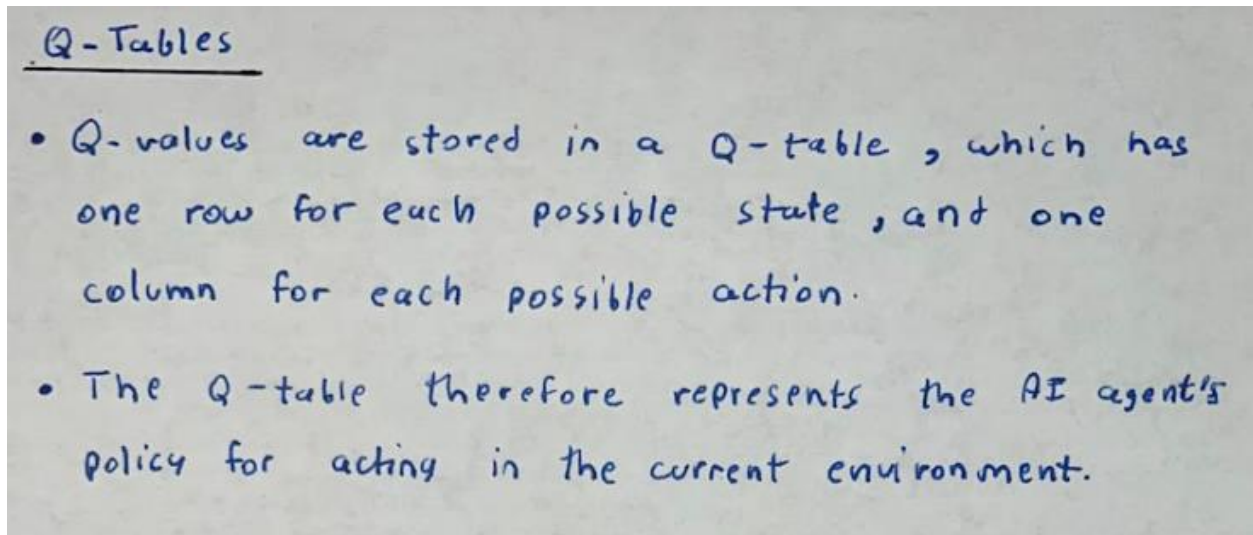 Q-Tables
• Q-values are stored in a Q-table, which has
one row for each possible state, and one
column for each possible action.
• The Q-table therefore represents the AI agent's
policy for acting in the current environment.